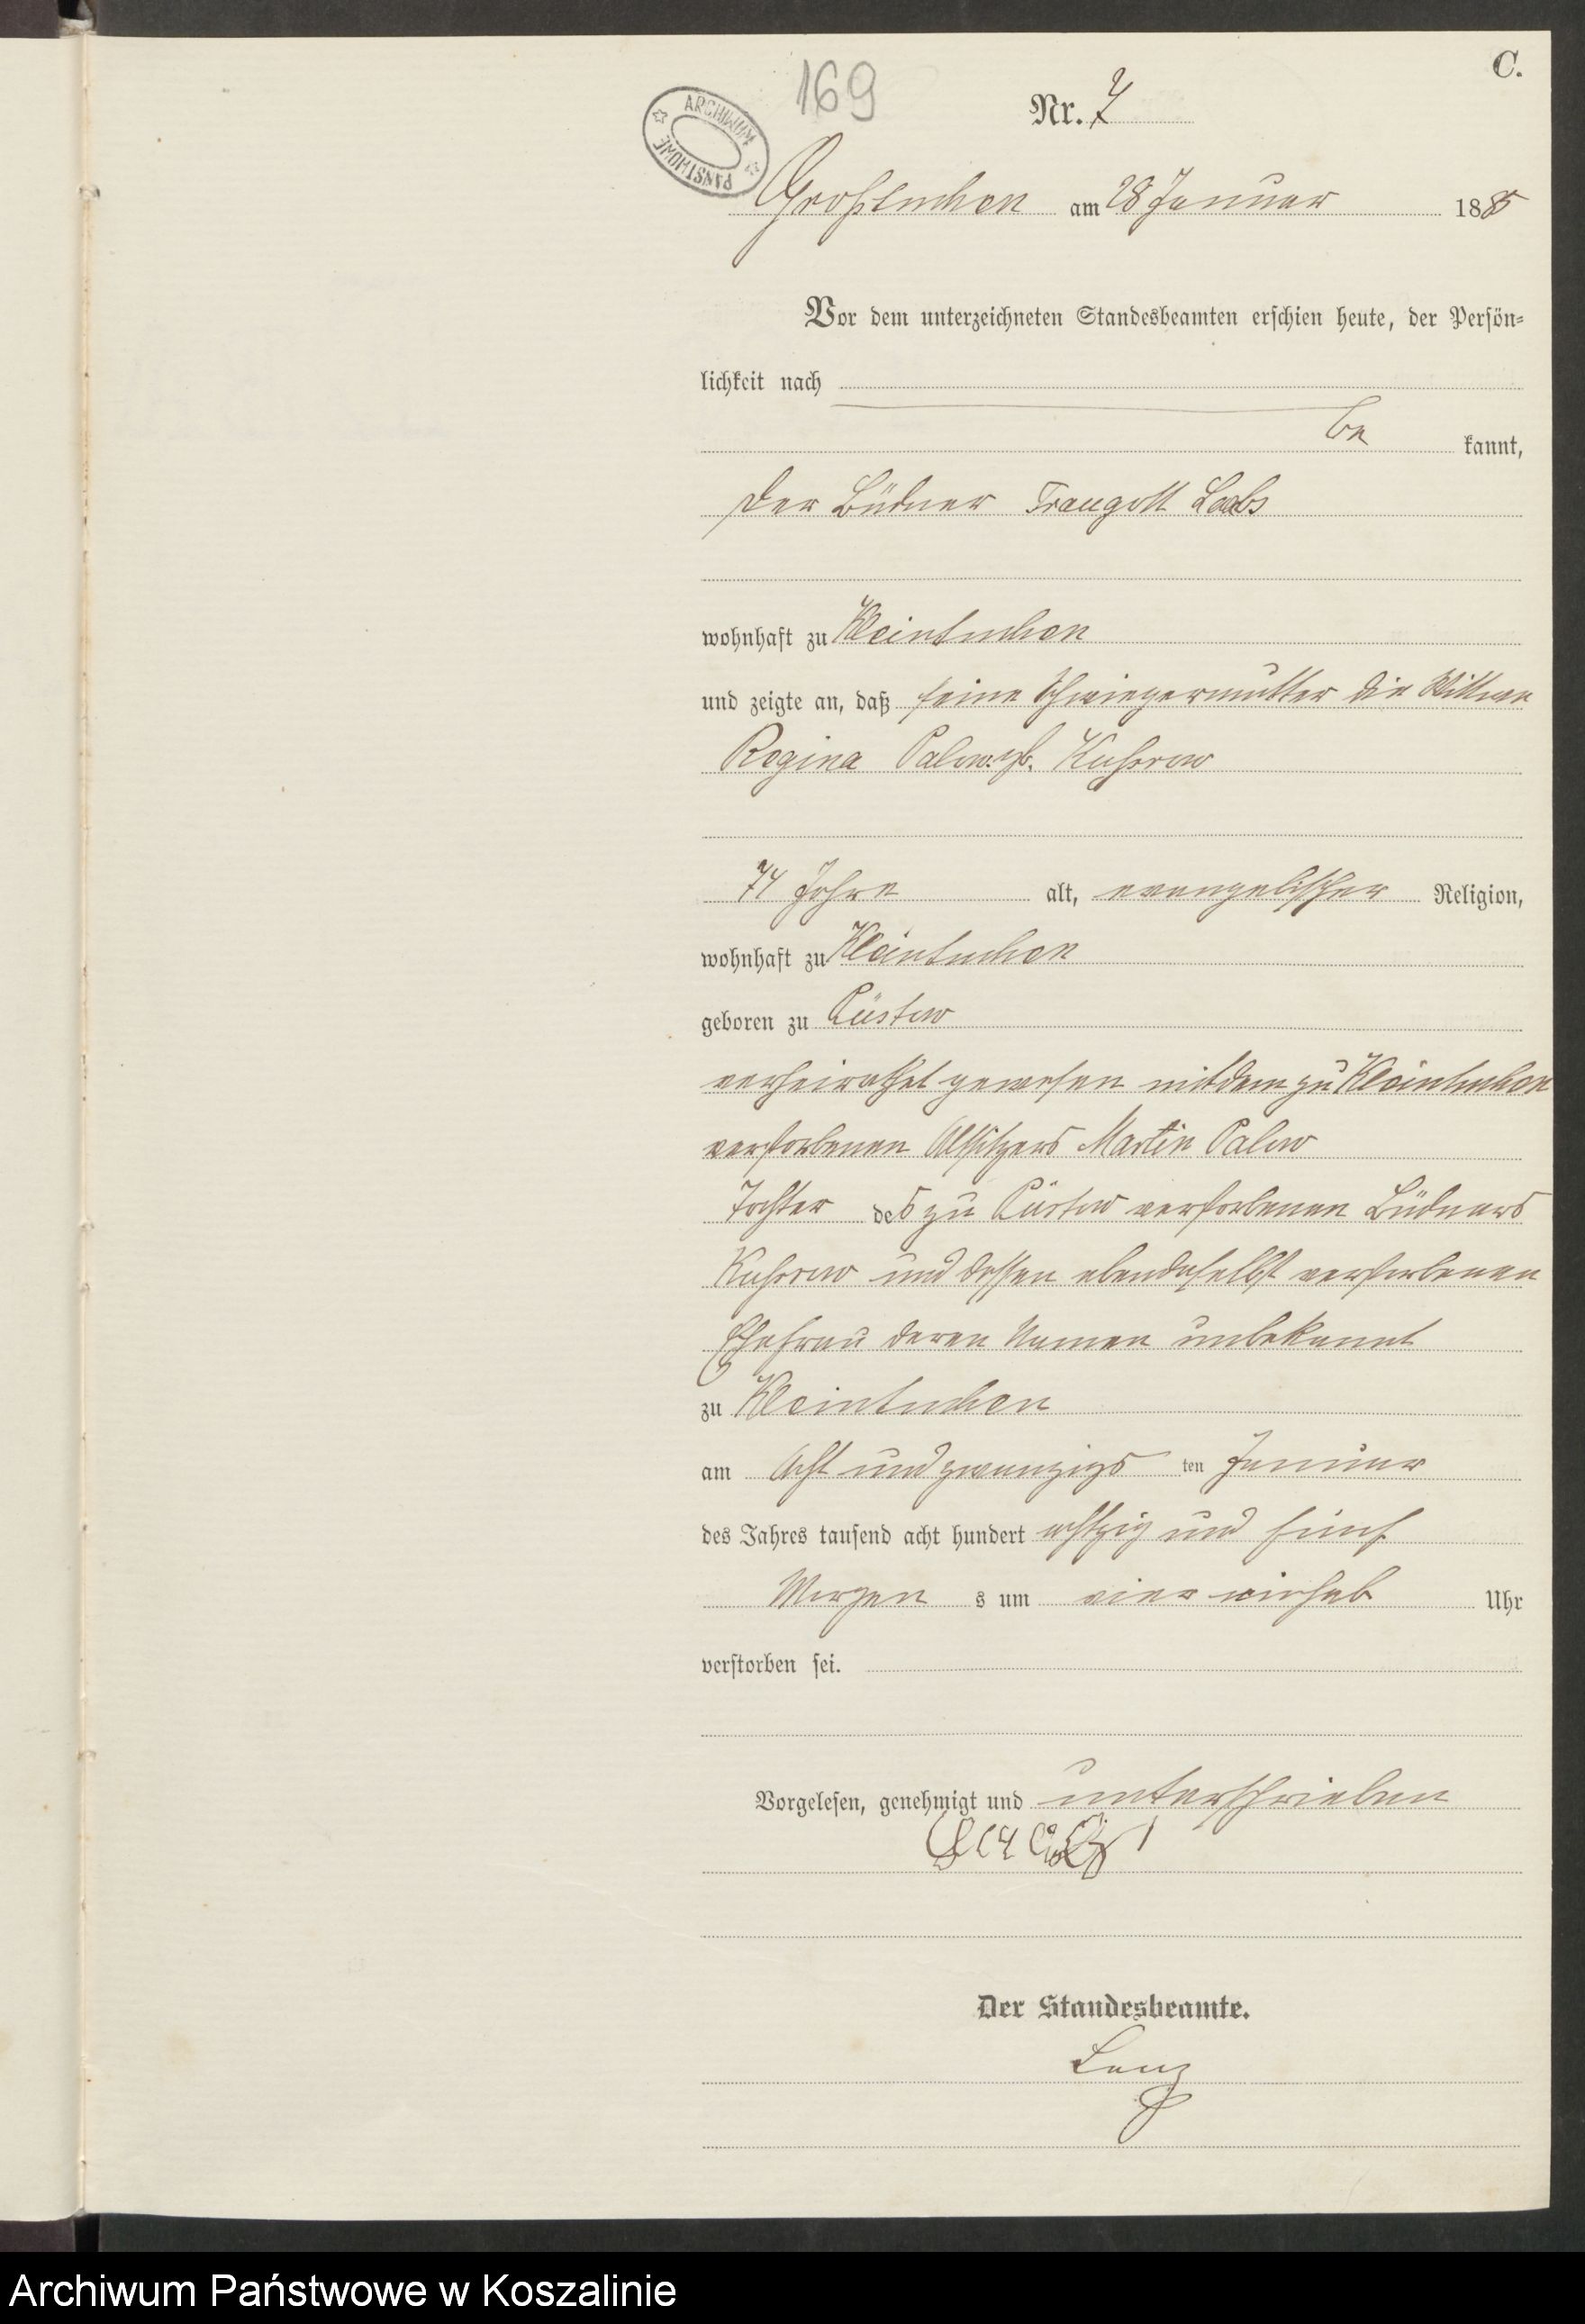 C.
169
Nr. 7
ARCHIWUM PAŃSTWOWE
Großtuchen am 28 Januar 1885
Vor dem unterzeichneten Standesbeamten erschien heute, der Persön-
lichkeit nach
be kannt,
der Büdner Traugott Labs
wohnhaft zu Kleintuchen
und zeigte an, daß seine Schwiegermutter die Wittwe
Regina Palow. gb. Kuhrow
74 Jahre alt, evangelischer Religion,
wohnhaft zu Kleintuchen
geboren zu Cüstow
verheirathet gewesen mit dem zu Kleintuchen
verstorbenen Altsitzers Martin Palow
Tochter des zu Cüstow verstorbenen Büdners
Kuhrow und dessen ebendaselbst verstorbenen
Ehefrau deren Namen unbekannt
zu Kleintuchen
am Acht und zwanzigs ten Januar
des Jahres tausend acht hundert achtzig und fünf
Morgen s um vier Uhr
verstorben sei.
Vorgelesen, genehmigt und unterschrieben
Der Standesbeamte.
Lenz
Archiwum Państwowe w Koszalinie